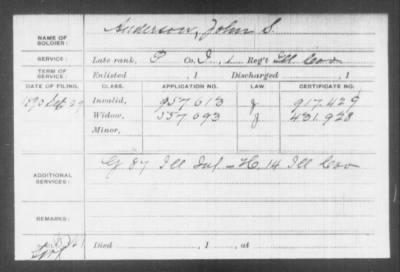 NAME OF SOLDIER: Anderson, John S.
SERVICE: Late rank, P Co. I, 1 Reg't Ill Cav
TERM OF SERVICE: Enlisted , 1 Discharged , 1
DATE OF FILING. CLASS. APPLICATION NO. LAW. CERTIFICATE NO.
1890 Sept 29 Invalid, 957 613 J 917.429
Widow, 557 093 J 431.928
Minor,
ADDITIONAL SERVICES: G 87 Ill Inf - H. 14 Ill Cav
REMARKS:
Died , 1 , at